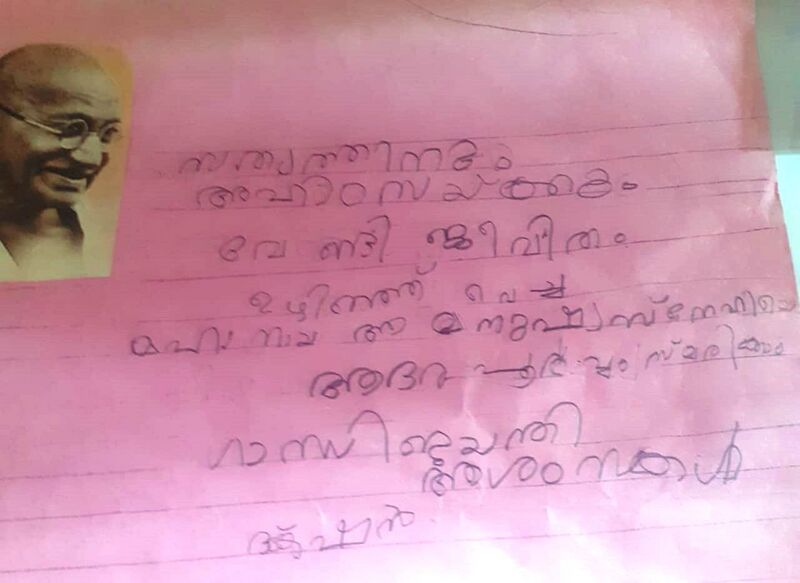 സത്യത്തിനും
അഹിംസയ്ക്കും
വേണ്ടി ജീവിതം
ഉഴിഞ്ഞ് വെച്ച
മഹാനായ ആ മനുഷ്യസ്നേഹിയെ
ആദര പൂർവ്വം സ്മരിക്കാം
ഗാന്ധി ജയന്തി
ആശംസകൾ